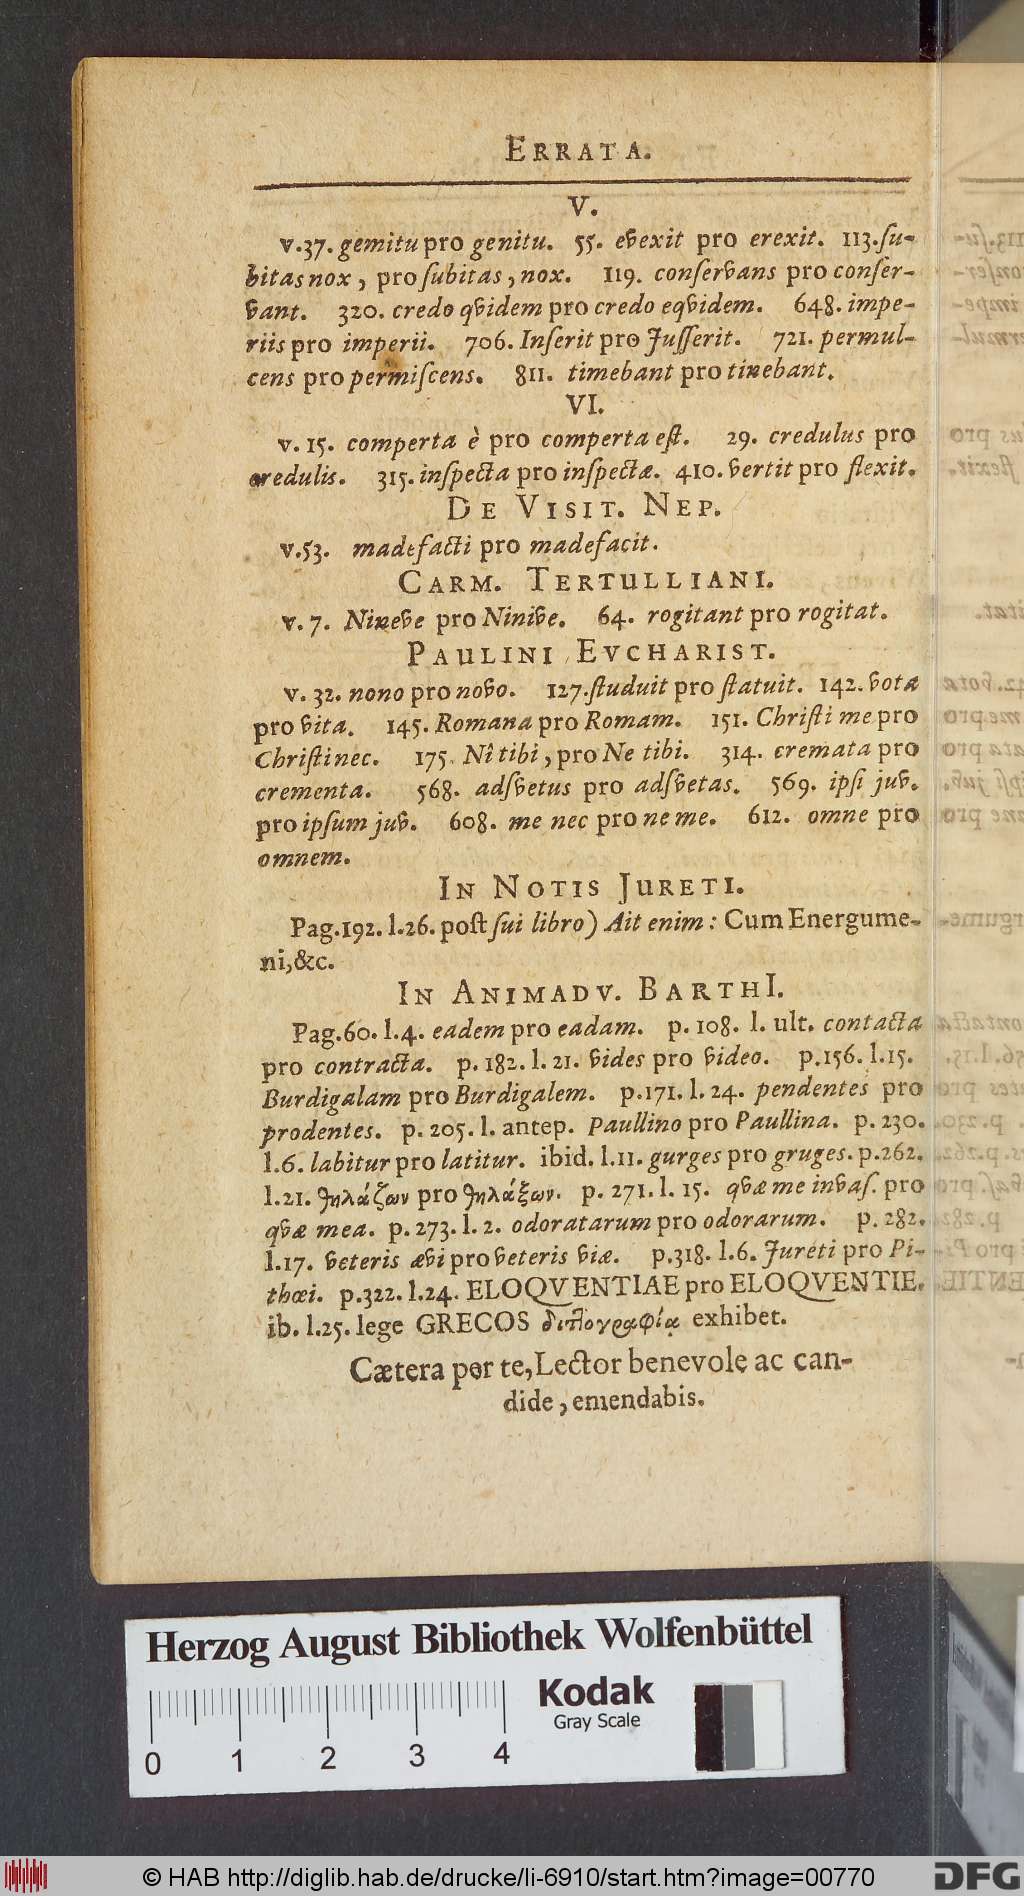 ERRATA.
V.
v.37. gemitu pro genitu. 55. evexit pro erexit. 113. ſu-
bitas nox, pro ſubitas, nox. 119. conſervans pro conſer-
vant. 320. credo qvidem pro credo eqvidem. 648. impe-
riis pro imperii. 706. Inſerit pro Juſſerit. 721. permul-
cens pro permiſcens. 811. timebant pro tinebant.
VI.
v. 15. comperta è pro comperta eſt. 29. credulus pro
credulis. 315. inſpecta pro inſpectæ. 410. vertit pro flexit.
DE VISIT. NEP.
v.53. madefacti pro madefacit.
CARM. TERTULLIANI.
v. 7. Nineve pro Ninive. 64. rogitant pro rogitat.
PAULINI EVCHARIST.
v. 32. nono pro novo. 127. ſtuduit pro ſtatuit. 142. vota
pro vita. 145. Romana pro Romam. 151. Chriſti me pro
Chriſti nec. 175. Nî tibi, pro Ne tibi. 314. cremata pro
crementa. 568. adſvetus pro adſvetas. 569. ipſi juv.
pro ipſum juv. 608. me nec pro ne me. 612. omne pro
omnem.
IN NOTIS JURETI.
Pag.192. l.26. poſt ſui libro) Ait enim: Cum Energume-
ni, &c.
IN ANIMADV. BARTHI.
Pag.60. l.4. eadem pro eadam. p. 108. l. ult. contacta
pro contracta. p. 182. l. 21. vides pro video. p.156. l.15.
Burdigalam pro Burdigalem. p.171. l. 24. pendentes pro
prodentes. p. 205. l. antep. Paullino pro Paullina. p. 230.
l.6. labitur pro latitur. ibid. l.11. gurges pro gruges. p.262.
l.21. θηλάζων pro θηλάξων. p. 271. l. 15. qvæ me invaſ. pro
qvæ mea. p. 273. l. 2. odoratarum pro odorarum. p. 282.
l.17. veteris ævi pro veteris viæ. p.318. l.6. Jureti pro Pi-
thœi. p.322. l.24. ELOQVENTIAE pro ELOQVENTIE.
ib. l.25. lege GRECOS διπλογραφίᾳ exhibet.
Cætera per te, Lector benevole ac can-
dide, emendabis.
Herzog August Bibliothek Wolfenbüttel
Kodak
Gray Scale
0 1 2 3 4
© HAB http://diglib.hab.de/drucke/li-6910/start.htm?image=00770
DFG